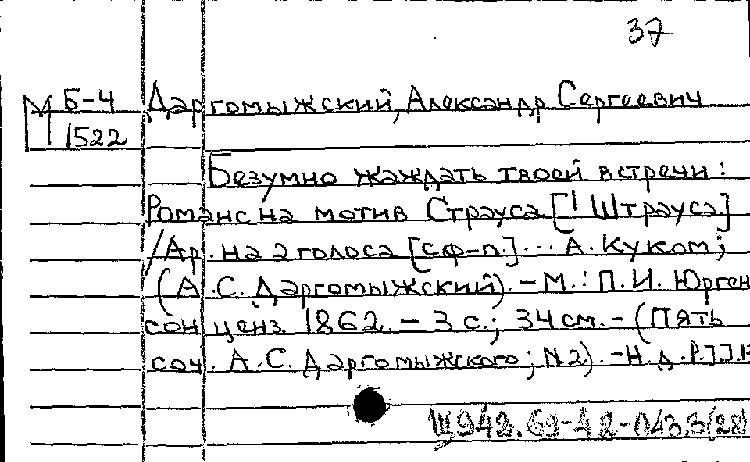 37
М Б-4 Даргомыжский, Александр Сергеевич
1522
Безумно жаждать твоей встречи:
Романс на мотив Страуса [! Штрауса]
/Ар. на 2 голоса [с ф-п.] ... А. Куком;
(А.С. Даргомыжский). - М.: П.И. Юрген
сон ценз. 1862. - 3 с.; 34 см. - (Пять
соч. А.С. Даргомыжского; N2). - Н.д.
Щ942.69-42-043.3(28)